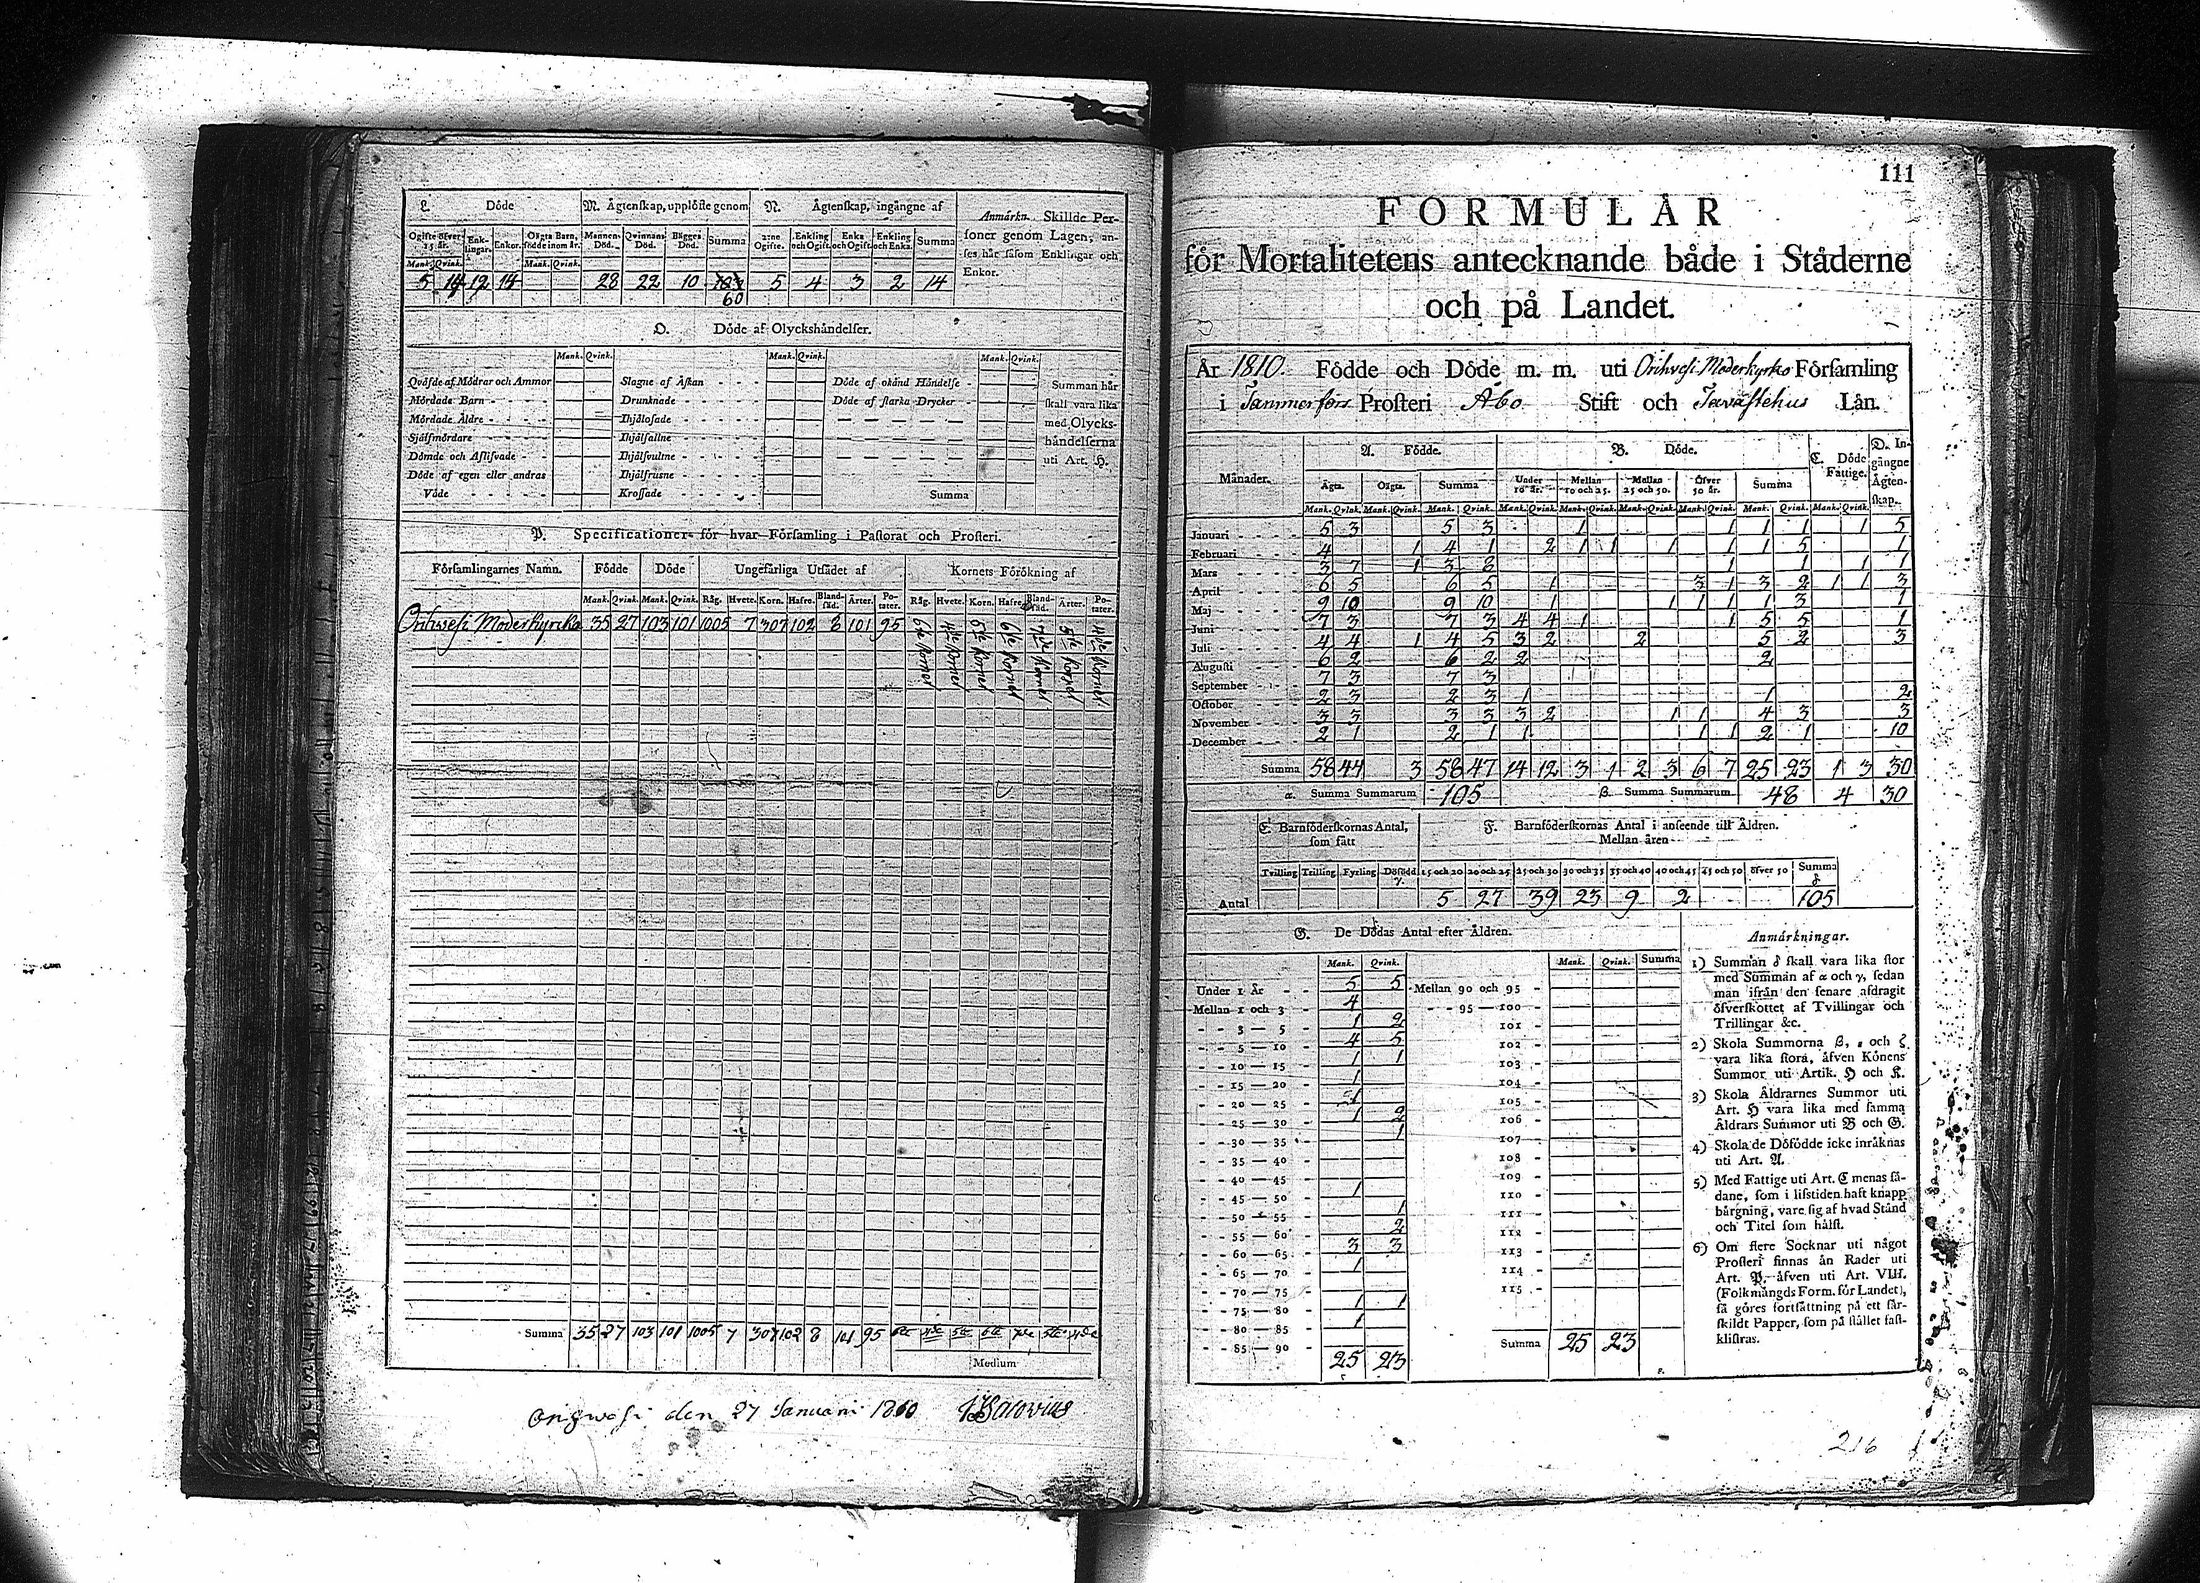 L. Döde
M. Ägtenskap, upplöste genom
N. Ägtenskap, ingångne af
Anmärkn. Skillde Per-
soner genom Lagen, an-
ses här såsom Enklingar och
Enkor.
Ogifte öfver 15 år. Enk-lingar. Enkor. Oägta Barn, födde inom år. Mannens Död. Qvinnans Död. Bägges Död. Summa 2:ne Ogifte. Enkling och Ogift. Enka och Ogift. Enkling och Enka. Summa
Mank. Qvink. Mank. Qvink.
5 14 12 14 28 22 10 60 5 4 3 2 14
O. Döde af Olyckshändelser.
Mank. Qvink. Mank. Qvink. Mank. Qvink.
Qväfde af Mödrar och Ammor Slagne af Åskan - - - Döde af okänd Händelse - Summan här
Mördade Barn - - - - Drunknade - - - Döde af starka Drycker - skall vara lika
Mördade Äldre - - - - Ihjälosade - - - med Olycks-
Sjelfmördare - - - - Ihjälfallne - - - händelserna
Dömde och Aflifvade - - Ihjälsvultne - - - uti Art. H.
Döde af egen eller andras Ihjälfrusne - - -
Våde - - - - - Krossade - - - - Summa
P. Specificationer för hvar Församling i Pastorat och Prosteri.
Församlingarnes Namn. Födde Döde Ungefärliga Utsädet af Kornets Förökning af
Mank. Qvink. Mank. Qvink. Råg. Hvete. Korn. Hafre. Bland-säd. Ärter. Po-tater. Råg. Hvete. Korn. Hafre. Bland-säd. Ärter. Po-tater.
Orihvesi Moderkyrcka 35 27 103 101 1005 7 307 102 8 101 95 6te Kornet 4de Kornet 5te Kornet 6te Kornet 7de Kornet 5te Kornet 4de Kornet
Summa 35 27 103 101 1005 7 307 102 8 101 95 6te 4de 5te 6te 7de 5te 4de
Medium
den 27 Januari 1810
111
FORMULÄR
för Mortalitetens antecknande både i Städerne
och på Landet.
År 1810. Födde och Döde m. m. uti Orihvesi Moderkyrko Församling
i Tammerfors Prosteri Åbo Stift och Tavastehus Län.
Månader. A. Födde. B. Döde. C. Döde Fattige. D. In-gångne Ägten-skap.
Ägta. Oägta. Summa Under 10 år. Mellan 10 och 25. Mellan 25 och 50. Öfver 50 år. Summa
Mank. Qvink. Mank. Qvink. Mank. Qvink. Mank. Qvink. Mank. Qvink. Mank. Qvink. Mank. Qvink. Mank. Qvink. Mank. Qvink.
Januari - - - 5 3 5 3 1 1 1 1 1 5
Februari - - - 4 1 4 1 2 1 1 1 1 1 5 1
Mars - - - 3 7 1 3 8 1 1 1 1
April - - - 6 5 6 5 1 3 1 3 2 1 1 3
Maj - - - 9 10 9 10 1 1 1 1 1 3 1
Juni - - - 7 3 7 3 4 4 1 1 5 5 1
Juli - - - 4 4 1 4 5 3 2 2 5 2 3
Augusti - - - 6 2 6 2 2 2
September - - - 7 3 7 3
October - - - 2 3 2 3 1 1 2
November - - - 3 3 3 3 3 2 1 1 4 3 3
December - - - 2 1 2 1 1 1 1 2 1 10
Summa 58 44 3 58 47 14 12 3 1 2 3 6 7 25 23 1 3 30
α. Summa Summarum 105 β. Summa Summarum 48 4 30
E. Barnföderskornas Antal, som fått
F. Barnföderskornas Antal i anseende till Åldren.
Mellan åren
Tvilling Trilling Fyrling Dödfödd γ. 15 och 20 20 och 25 25 och 30 30 och 35 35 och 40 40 och 45 45 och 50 öfver 50 Summa δ
Antal 5 27 39 23 9 2 105
G. De Dödas Antal efter Åldren.
Mank. Qvink. Mank. Qvink. Summa
Under 1 År - - 5 5 Mellan 90 och 95 -
Mellan 1 och 3 - 4 - - 95 — 100 -
- - 3 — 5 - 1 2 101 -
- - 5 — 10 - 4 5 102 -
- - 10 — 15 - 1 1 103 -
- - 15 — 20 - 1 104 -
- - 20 — 25 - 1 105 -
- - 25 — 30 - 1 2 106 -
- - 30 — 35 - 1 107 -
- - 35 — 40 - 108 -
- - 40 — 45 - 109 -
- - 45 — 50 - 1 110 -
- - 50 — 55 - 1 111 -
- - 55 — 60 - 2 112 -
- - 60 — 65 - 3 3 113 -
- - 65 — 70 - 1 114 -
- - 70 — 75 - 115 -
- - 75 — 80 - 1 1
- - 80 — 85 - 1
- - 85 — 90 - Summa 25 23
25 23
Anmärkningar.
1) Summan δ skall vara lika stor
med Summan af α och γ, sedan
man ifrån den senare afdragit
öfverskottet af Tvillingar och
Trillingar &c.
2) Skola Summorna β, ε och ζ
vara lika stora, äfven Könens
Summor uti Artik. H och K.
3) Skola Åldrarnes Summor uti
Art. H vara lika med samma
Åldrars Summor uti B och G.
4) Skola de Döfödde icke inräknas
uti Art. A.
5) Med Fattige uti Art. C menas så-
dane, som i lifstiden haft knapp
bärgning, vare sig af hvad Stånd
och Titel som hälst.
6) Om flere Socknar uti något
Prosteri finnas än Rader uti
Art. P. äfven uti Art. VIII.
(Folkmängds Form. för Landet),
så göres fortsättning på ett sär-
skildt Papper, som på stället fast-
klistras.
216